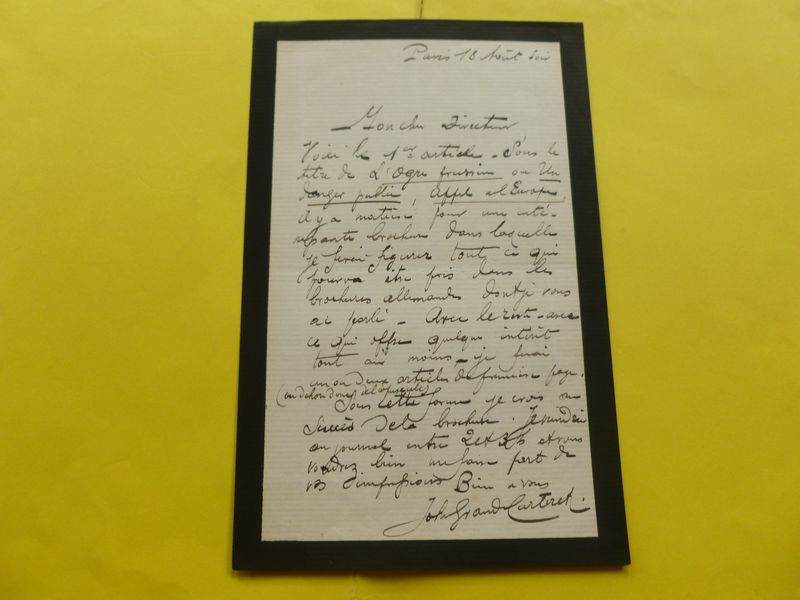 Paris 18 Août soir
Mon cher Directeur
Voici le 1er article - Sous le
titre de L'Ogre prussien ou Un
danger public, Appel à l'Europe,
il y a matière pour une inté-
ressante brochure dans laquelle
je ferai figurer tout ce qui
pourra être pris dans les
brochures allemandes dont je vous
ai parlé - Avec le reste - avec
ce qui offre quelque intérêt
tout au moins - je ferai
un ou deux articles de première page.
(en dehors donc de la brochure)
Sous cette forme je crois au
succès de la brochure. Je viendrai
au journal entre 2 et 3h et vous
voudrez bien me faire part de
vos impressions Bien à vous
John Grand-Carteret.